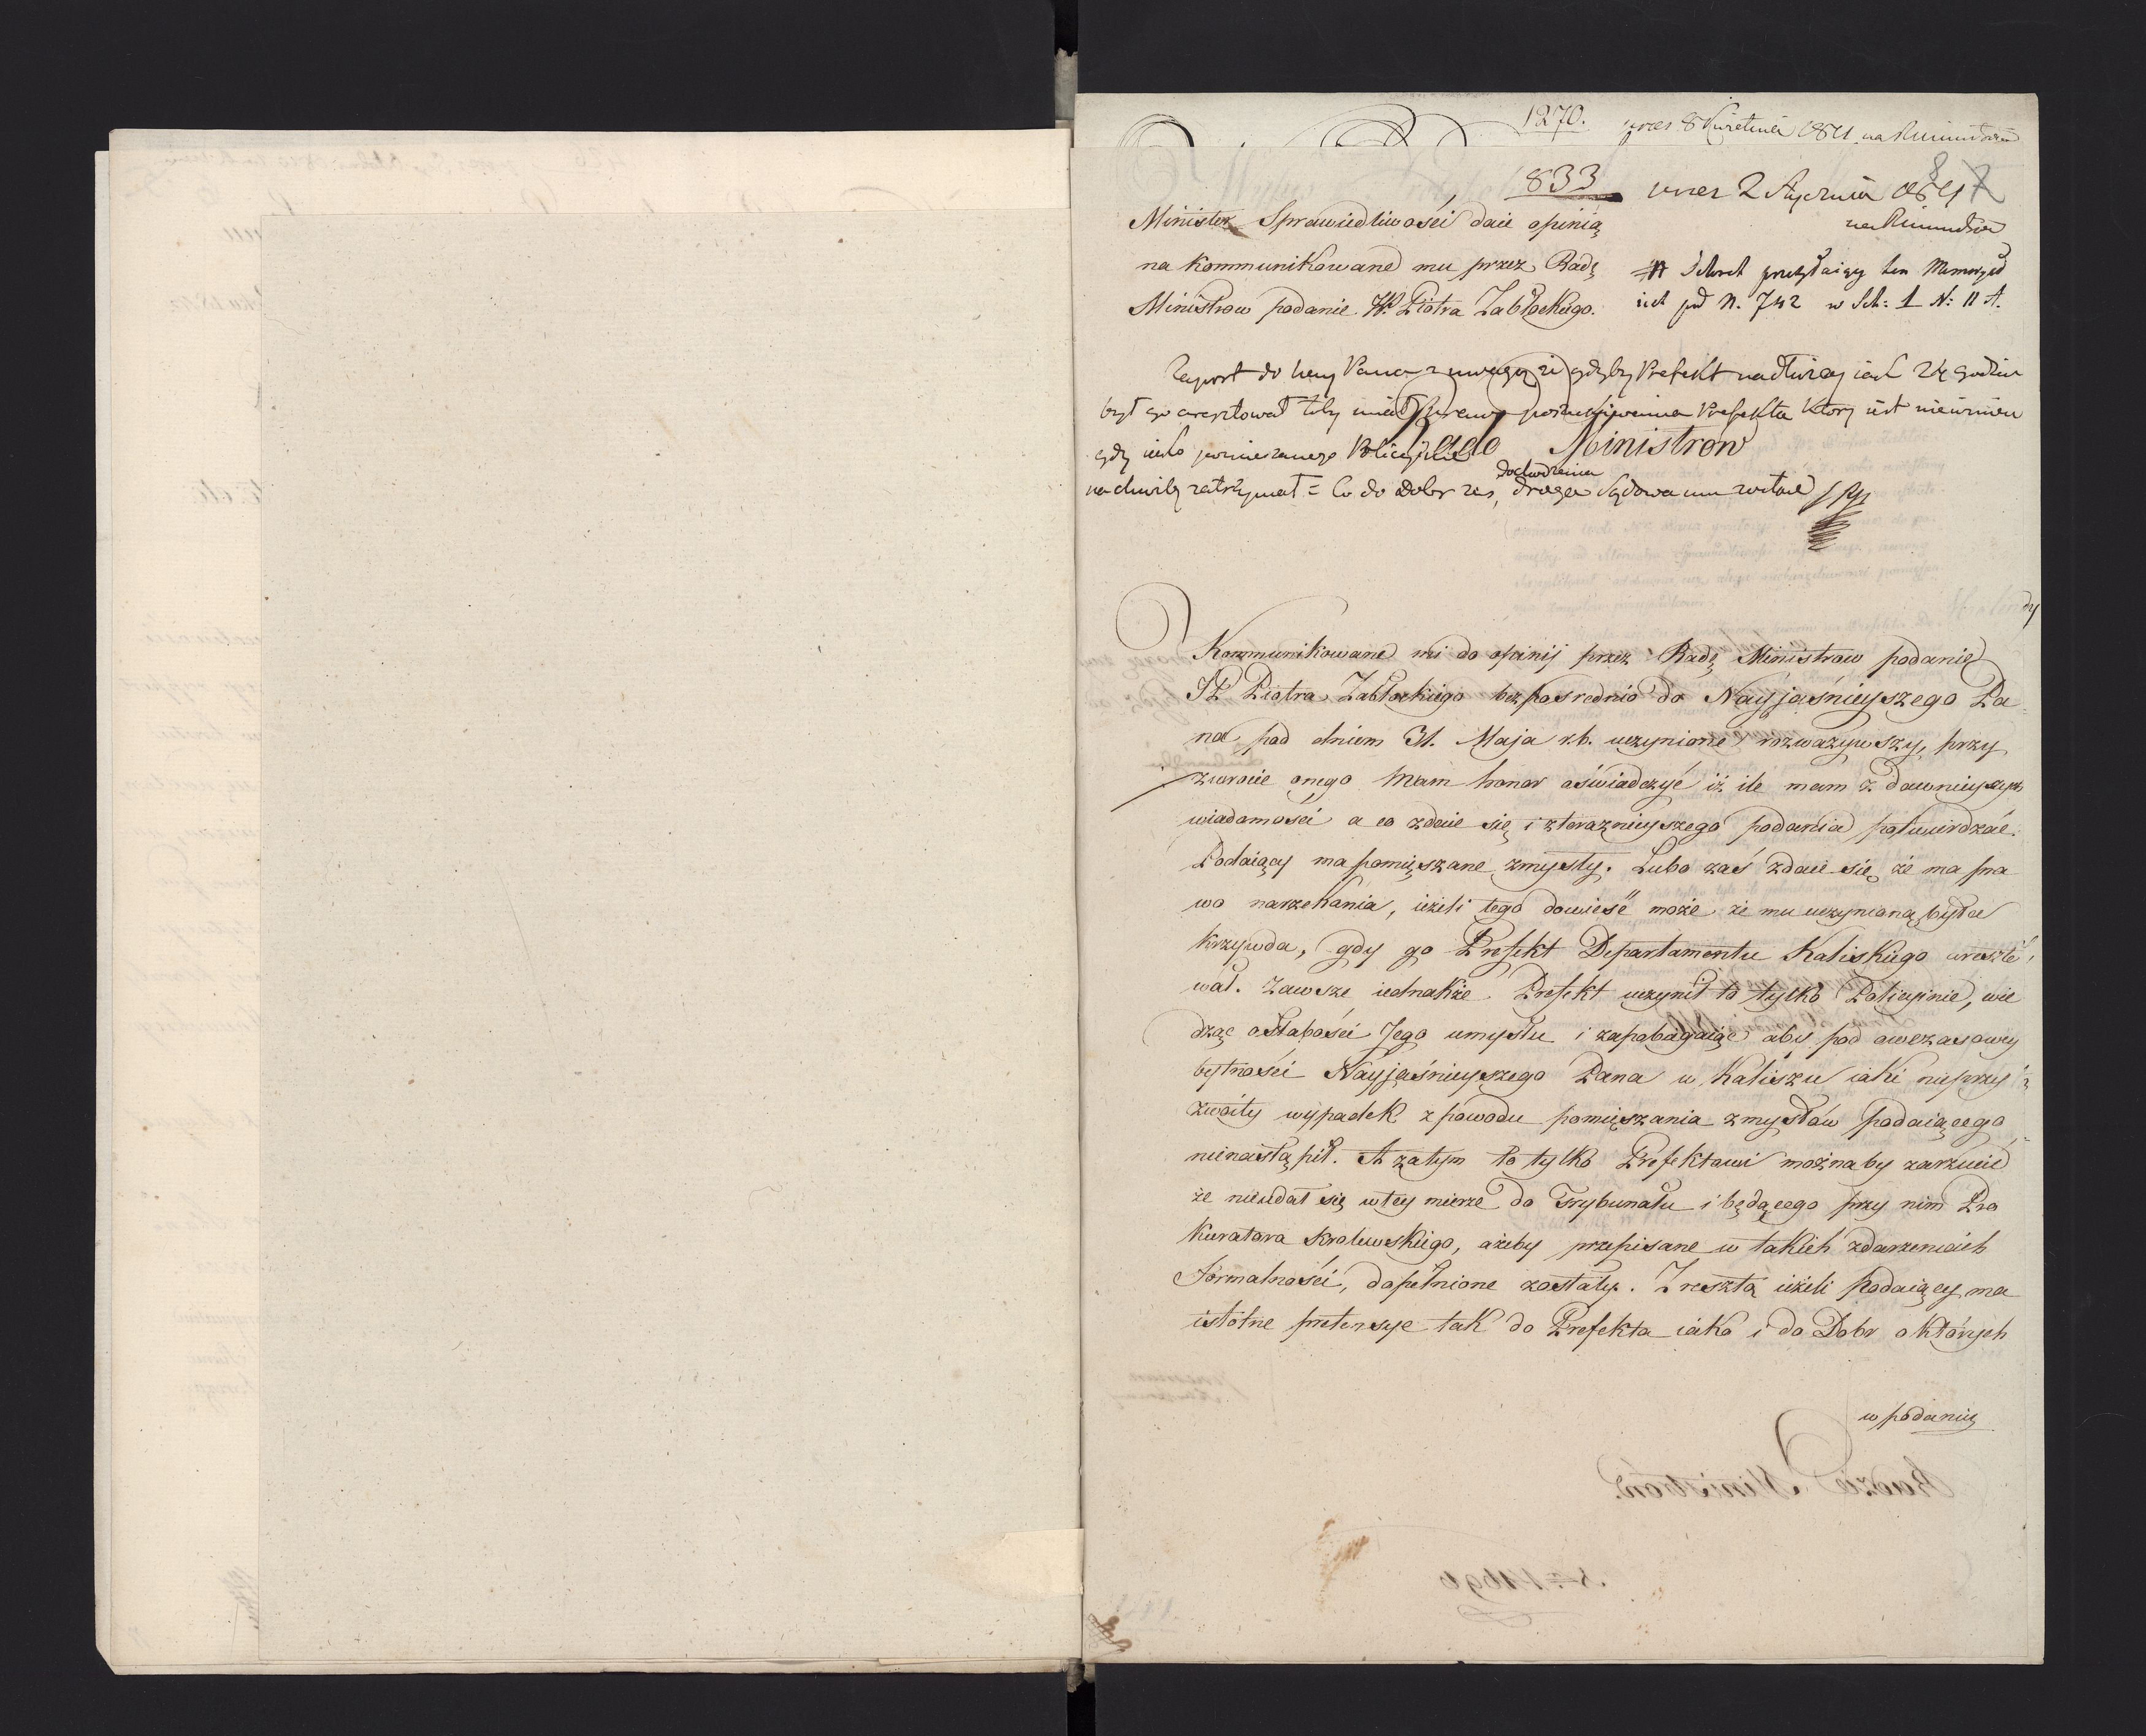 1270.
833
Minister Sprawiedliwości daie opinią
na kommunikowane mu przez Radę
Ministrow podanie W. Piotra Zabłockiego.
wnies 2 Stycznia
ten Memoryał
iest pod N. 742 w Sek: 1 N: 11 A.
Raport do Pana z uwagą że gdyby Prefekt nadłużey iak 24 godzin
był go aresztował toby miał prawo poszukiwania Prefekta ktory iest niewinien
gdy iako pomieszanego Policyinie
Rada Ministrow
dochodzenia
na chwilę zatrzymał = Co do Dobr zas, droga Sądowa mu zostaie
Kommunikowane mi do opinij przez Radę Ministrow podanie
JP Piotra Zabłockiego bezposrednio do Nayjaśnieyszego Pa
na pod dniem 31. Maja r.b. uczynione rozważywszy, przy
zwrocie onego mam honor oświadczyć iż ile mam z dawnieyszych
wiadomości a co zdaie się i z teraznieyszego podania potwierdzać.
Podaiący ma pomięszane zmysły. Lubo zaś zdaie się że ma pra
wo narzekania, ieżeli tego dowieść może że mu uczynioną była
krzywda, gdy go Prefekt Departamentu Kaliskiego areszto
wał. Zawsze iednakże Prefekt uczynił to tylko Policyinie, wie
dząc o słabości Jego umysłu i zapobiegaiąc aby pod owczasowey
bytności Nayjaśnieyszego Pana w Kaliszu iaki nieprzy
zwoity wypadek z powodu pomięszania zmysłów podaiącego
nienastąpił. A zatym to tylko Prefektowi możnaby zarzucić
że nieudał się w tey mierze do Trybunału i będącego przy nim Pro
kuratora Krolewskiego, ażeby przepisane w takich zdarzeniach
formalności, dopełnione zostały. Zresztą ieżeli podaiący ma
istotne pretensye tak do Prefekta iako i do Dobr o których
w podaniu